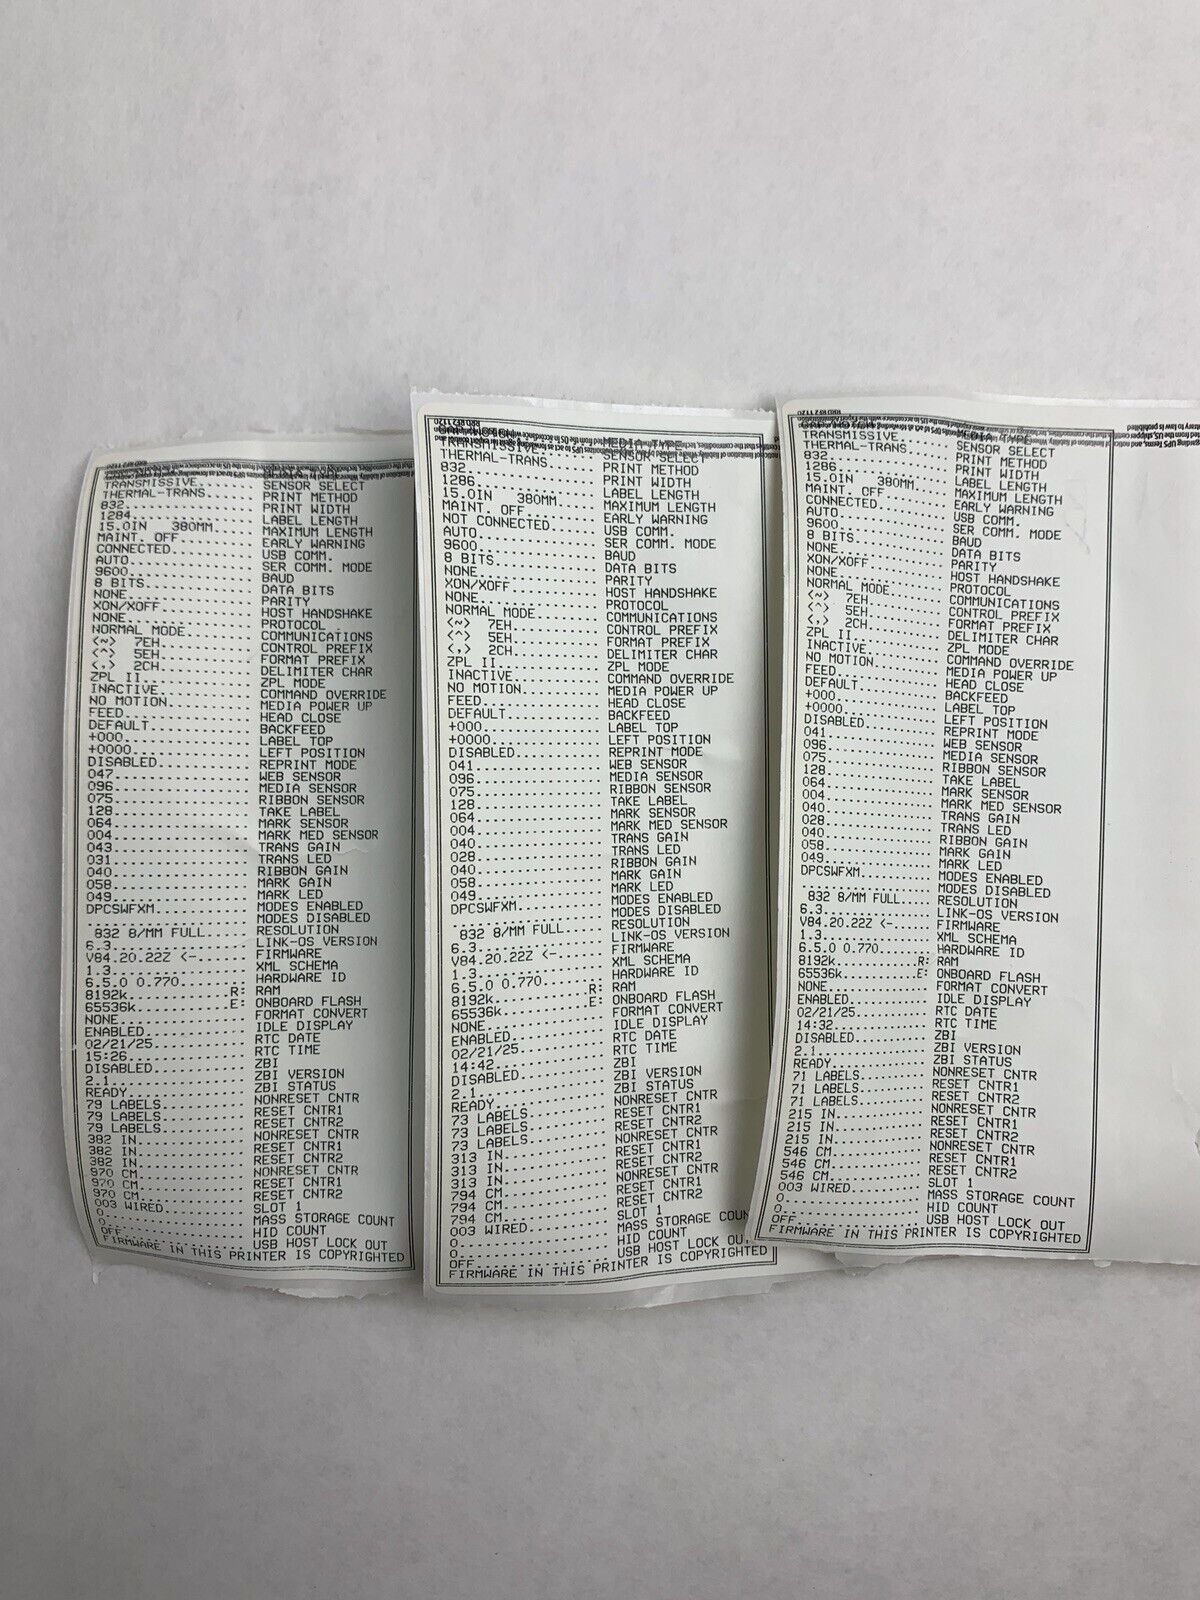 RRD RF 2 1120
TRANSMISSIVE........ SENSOR SELECT
THERMAL-TRANS....... PRINT METHOD
832................. PRINT WIDTH
1284................ LABEL LENGTH
15.0IN   380MM...... MAXIMUM LENGTH
MAINT. OFF.......... EARLY WARNING
CONNECTED........... USB COMM.
AUTO................ SER COMM. MODE
9600................ BAUD
8 BITS.............. DATA BITS
NONE................ PARITY
XON/XOFF............ HOST HANDSHAKE
NONE................ PROTOCOL
NORMAL MODE......... COMMUNICATIONS
<~>  7EH............ CONTROL PREFIX
<^>  5EH............ FORMAT PREFIX
<,>  2CH............ DELIMITER CHAR
ZPL II.............. ZPL MODE
INACTIVE............ COMMAND OVERRIDE
NO MOTION........... MEDIA POWER UP
FEED................ HEAD CLOSE
DEFAULT............. BACKFEED
+000................ LABEL TOP
+0000............... LEFT POSITION
DISABLED............ REPRINT MODE
047................. WEB SENSOR
096................. MEDIA SENSOR
075................. RIBBON SENSOR
128................. TAKE LABEL
064................. MARK SENSOR
004................. MARK MED SENSOR
043................. TRANS GAIN
031................. TRANS LED
040................. RIBBON GAIN
058................. MARK GAIN
049................. MARK LED
DPCSWFXM............ MODES ENABLED
.................... MODES DISABLED
832 8/MM FULL....... RESOLUTION
6.3................. LINK-OS VERSION
V84.20.22Z <-....... FIRMWARE
1.3................. XML SCHEMA
6.5.0 0.770......... HARDWARE ID
8192k............R: RAM
65536k...........E: ONBOARD FLASH
NONE................ FORMAT CONVERT
ENABLED............. IDLE DISPLAY
02/21/25............ RTC DATE
15:26............... RTC TIME
DISABLED............ ZBI
2.1................. ZBI VERSION
READY............... ZBI STATUS
79 LABELS........... NONRESET CNTR
79 LABELS........... RESET CNTR1
79 LABELS........... RESET CNTR2
382 IN.............. NONRESET CNTR
382 IN.............. RESET CNTR1
382 IN.............. RESET CNTR2
970 CM.............. NONRESET CNTR
970 CM.............. RESET CNTR1
970 CM.............. RESET CNTR2
003 WIRED........... SLOT 1
0................... MASS STORAGE COUNT
0................... HID COUNT
OFF................. USB HOST LOCK OUT
FIRMWARE IN THIS PRINTER IS COPYRIGHTED
RRD RF 2 1120
MEDIA TYPE
TRANSMISSIVE........ SENSOR SELECT
THERMAL-TRANS....... PRINT METHOD
832................. PRINT WIDTH
1286................ LABEL LENGTH
15.0IN   380MM...... MAXIMUM LENGTH
MAINT. OFF.......... EARLY WARNING
NOT CONNECTED....... USB COMM.
AUTO................ SER COMM. MODE
9600................ BAUD
8 BITS.............. DATA BITS
NONE................ PARITY
XON/XOFF............ HOST HANDSHAKE
NONE................ PROTOCOL
NORMAL MODE......... COMMUNICATIONS
<~>  7EH............ CONTROL PREFIX
<^>  5EH............ FORMAT PREFIX
<,>  2CH............ DELIMITER CHAR
ZPL II.............. ZPL MODE
INACTIVE............ COMMAND OVERRIDE
NO MOTION........... MEDIA POWER UP
FEED................ HEAD CLOSE
DEFAULT............. BACKFEED
+000................ LABEL TOP
+0000............... LEFT POSITION
DISABLED............ REPRINT MODE
041................. WEB SENSOR
096................. MEDIA SENSOR
075................. RIBBON SENSOR
128................. TAKE LABEL
064................. MARK SENSOR
004................. MARK MED SENSOR
040................. TRANS GAIN
028................. TRANS LED
040................. RIBBON GAIN
058................. MARK GAIN
049................. MARK LED
DPCSWFXM............ MODES ENABLED
.................... MODES DISABLED
832 8/MM FULL....... RESOLUTION
6.3................. LINK-OS VERSION
V84.20.22Z <-....... FIRMWARE
1.3................. XML SCHEMA
6.5.0 0.770......... HARDWARE ID
8192k............R: RAM
65536k...........E: ONBOARD FLASH
NONE................ FORMAT CONVERT
ENABLED............. IDLE DISPLAY
02/21/25............ RTC DATE
14:42............... RTC TIME
DISABLED............ ZBI
2.1................. ZBI VERSION
READY............... ZBI STATUS
73 LABELS........... NONRESET CNTR
73 LABELS........... RESET CNTR1
73 LABELS........... RESET CNTR2
313 IN.............. NONRESET CNTR
313 IN.............. RESET CNTR1
313 IN.............. RESET CNTR2
794 CM.............. NONRESET CNTR
794 CM.............. RESET CNTR1
794 CM.............. RESET CNTR2
003 WIRED........... SLOT 1
0................... MASS STORAGE COUN
0................... HID COUNT
OFF................. USB HOST LOCK OU
FIRMWARE IN THIS PRINTER IS COPYRIGHTED
RRD RF 2 1120
MEDIA TYPE
TRANSMISSIVE........ SENSOR SELECT
THERMAL-TRANS....... PRINT METHOD
832................. PRINT WIDTH
1286................ LABEL LENGTH
15.0IN   380MM...... MAXIMUM LENGTH
MAINT. OFF.......... EARLY WARNING
CONNECTED........... USB COMM.
AUTO................ SER COMM. MODE
9600................ BAUD
8 BITS.............. DATA BITS
NONE................ PARITY
XON/XOFF............ HOST HANDSHAKE
NONE................ PROTOCOL
NORMAL MODE......... COMMUNICATIONS
<~>  7EH............ CONTROL PREFIX
<^>  5EH............ FORMAT PREFIX
<,>  2CH............ DELIMITER CHAR
ZPL II.............. ZPL MODE
INACTIVE............ COMMAND OVERRIDE
NO MOTION........... MEDIA POWER UP
FEED................ HEAD CLOSE
DEFAULT............. BACKFEED
+000................ LABEL TOP
+0000............... LEFT POSITION
DISABLED............ REPRINT MODE
041................. WEB SENSOR
096................. MEDIA SENSOR
075................. RIBBON SENSOR
128................. TAKE LABEL
064................. MARK SENSOR
004................. MARK MED SENSOR
040................. TRANS GAIN
028................. TRANS LED
040................. RIBBON GAIN
058................. MARK GAIN
049................. MARK LED
DPCSWFXM............ MODES ENABLED
.................... MODES DISABLED
832 8/MM FULL....... RESOLUTION
6.3................. LINK-OS VERSION
V84.20.22Z <-....... FIRMWARE
1.3................. XML SCHEMA
6.5.0 0.770......... HARDWARE ID
8192k............R: RAM
65536k...........E: ONBOARD FLASH
NONE................ FORMAT CONVERT
ENABLED............. IDLE DISPLAY
02/21/25............ RTC DATE
14:32............... RTC TIME
DISABLED............ ZBI
2.1................. ZBI VERSION
READY............... ZBI STATUS
71 LABELS........... NONRESET CNTR
71 LABELS........... RESET CNTR1
71 LABELS........... RESET CNTR2
215 IN.............. NONRESET CNTR
215 IN.............. RESET CNTR1
215 IN.............. RESET CNTR2
546 CM.............. NONRESET CNTR
546 CM.............. RESET CNTR1
546 CM.............. RESET CNTR2
003 WIRED........... SLOT 1
0................... MASS STORAGE COUNT
0................... HID COUNT
OFF................. USB HOST LOCK OUT
FIRMWARE IN THIS PRINTER IS COPYRIGHTED